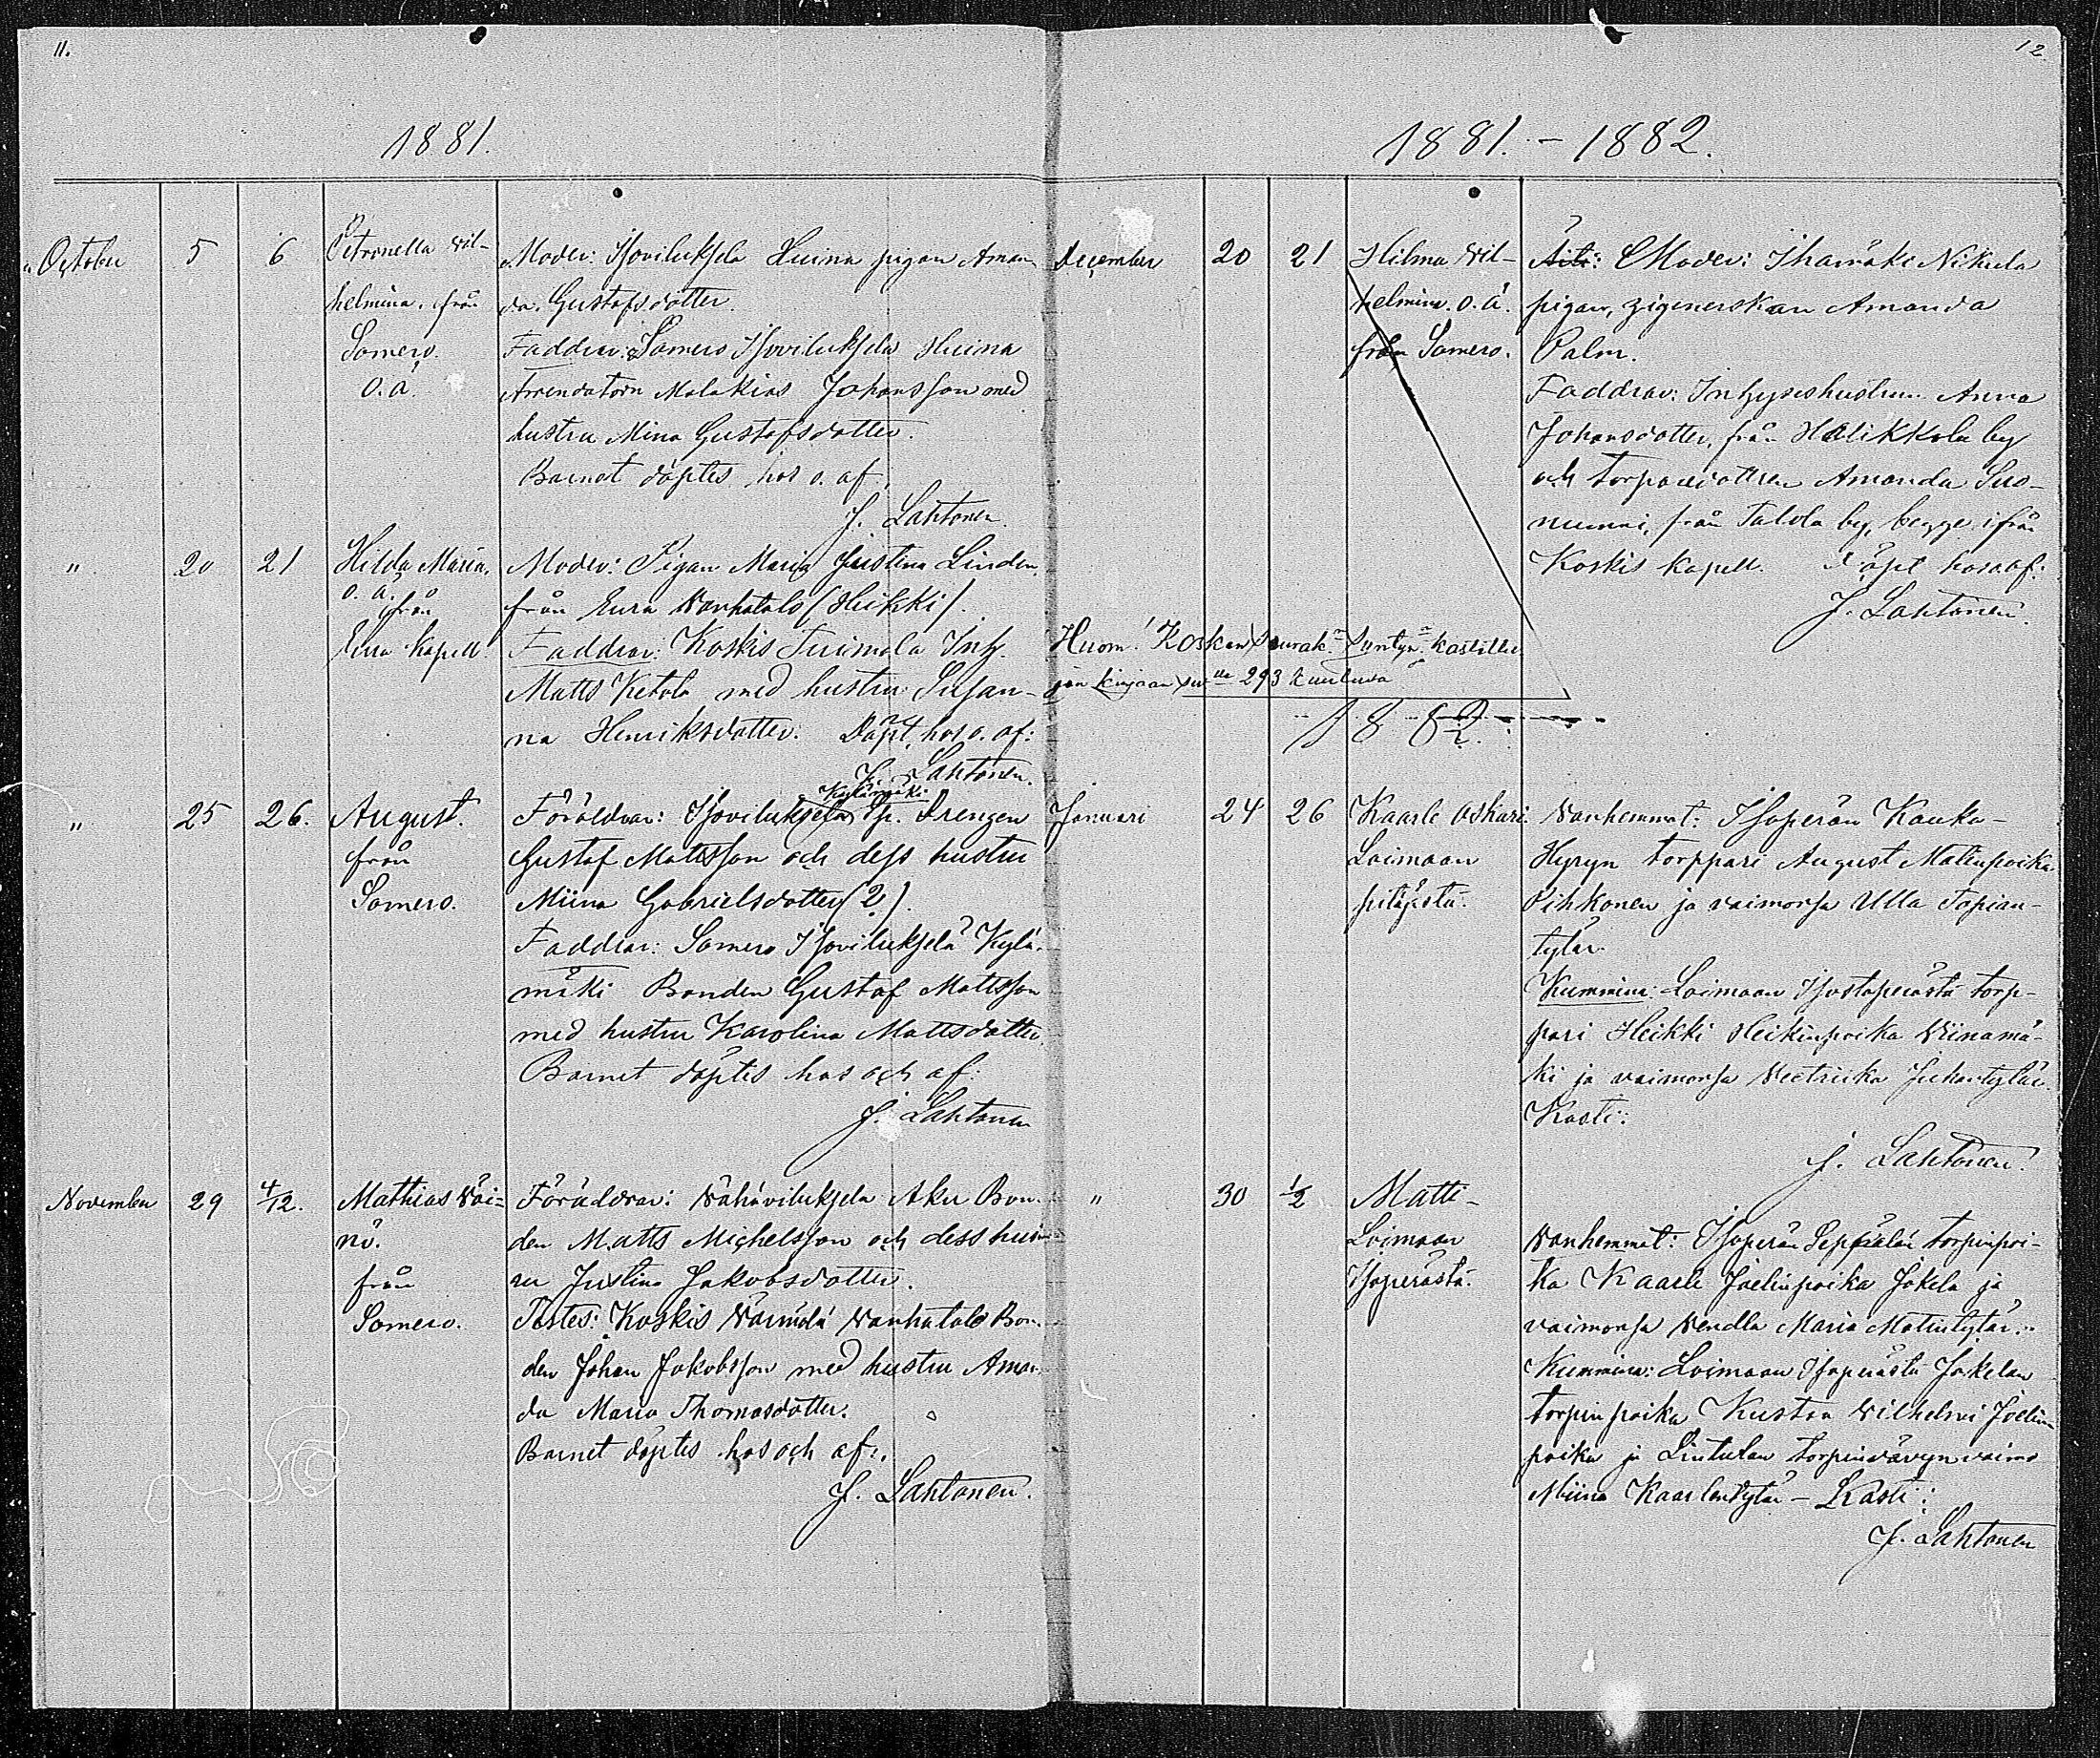 11.
1881.
October 5 6 Petronella Wil-
helmina. från
Somero.
O.ä.
Moder: Isoviluksela Huina pigan Aman-
da Gustafsdotter.
Faddrar: Somero Isoviluksela Huina
Arrendatorn Malakias Johansson med
hustru Mina Gustafsdotter.
Barnet döptes hos o. af:
J. Lahtonen.
" 20 21 Hilda Maria.
o. ä.
från
Eura Kapell.
Moder: Pigan Maria Justina Linden
från Eura Vanhatalo (Heikki).
Faddrar: Koskis Tuimala Inh.
Matts Ketola med hustru Susan-
na Henriksdotter. Döpt hos o. af:
J. Lahtonen.
" 25 26. August.
från
Somero.
Föräldrar: Isoviluksela Drengen
Gustaf Mattsson och dess hustru
Miina Gabrielsdotter (2).
Faddrar: Somero Isoviluksela Kylä-
mäki Bonden Gustaf Mattsson
med hustru Karolina Mattsdotter
Barnet döptes hos och af:
J. Lahtonen
November 29 4/12. Mathias Wäi-
nö.
från
Somero.
Föräldrar: Vähäviluksela Aku Bon-
den Matts Michelsson och dess hust-
ru Justina Jakobsdotter.
Testes: Koskis Vanhatalo Bon-
den Johan Jakobsson med hustru Aman-
da Maria Thomasdotter.
Barnet döptes hos och af:
J. Lahtonen.
12.
1881. - 1882.
December 20 21 Hilma Wil-
helmina. o. ä.
från Somero.
Äiti: Moder: Ihamäki Nikula
pigan, zigenerskan Amanda
Palm.
Faddrar: Inhyseshustrun Anna
Johansdotter, från Halikkola by
och torparedottren Amanda Suo-
nummi, från Talola by, begge ifrån
Koskis kapell. Döpt hos o. af:
J. Lahtonen.
Huom! Kosken seurak. syntyn. kastettu-
jen kirjaan siv. 293 kuuluva
1882.
Januari 24 26 Kaarle Oskari.
Loimaan
pitäjästä.
Vanhemmat: Isoperän Kauka-
Hyryn torppari August Matinpoika
Pihkonen ja vaimonsa Ulla Tapian-
tytär.
Kummina: Loimaan Isostaperästä torp-
pari Heikki Heikinpoika Viinamä-
ki ja vaimonsa Veetriika Juhantytär.
Kasti:
J. Lahtonen.
" 30 1/2 Matti-
Loimaan
Isoperästä.
Vanhemmat: Isoperän Seppälän torpinpoi-
ka Kaarle Joelinpoika Jokela ja
vaimonsa Vendla Maria Matintytär.
Kummina: Loimaan Isoperästä Jokelan
torpinpoika Kustaa Vilhelmi Joelin-
poika ja Lintulan torpinvävyn vaimo
Miina Kaarlentytär - Kasti:
J. Lahtonen